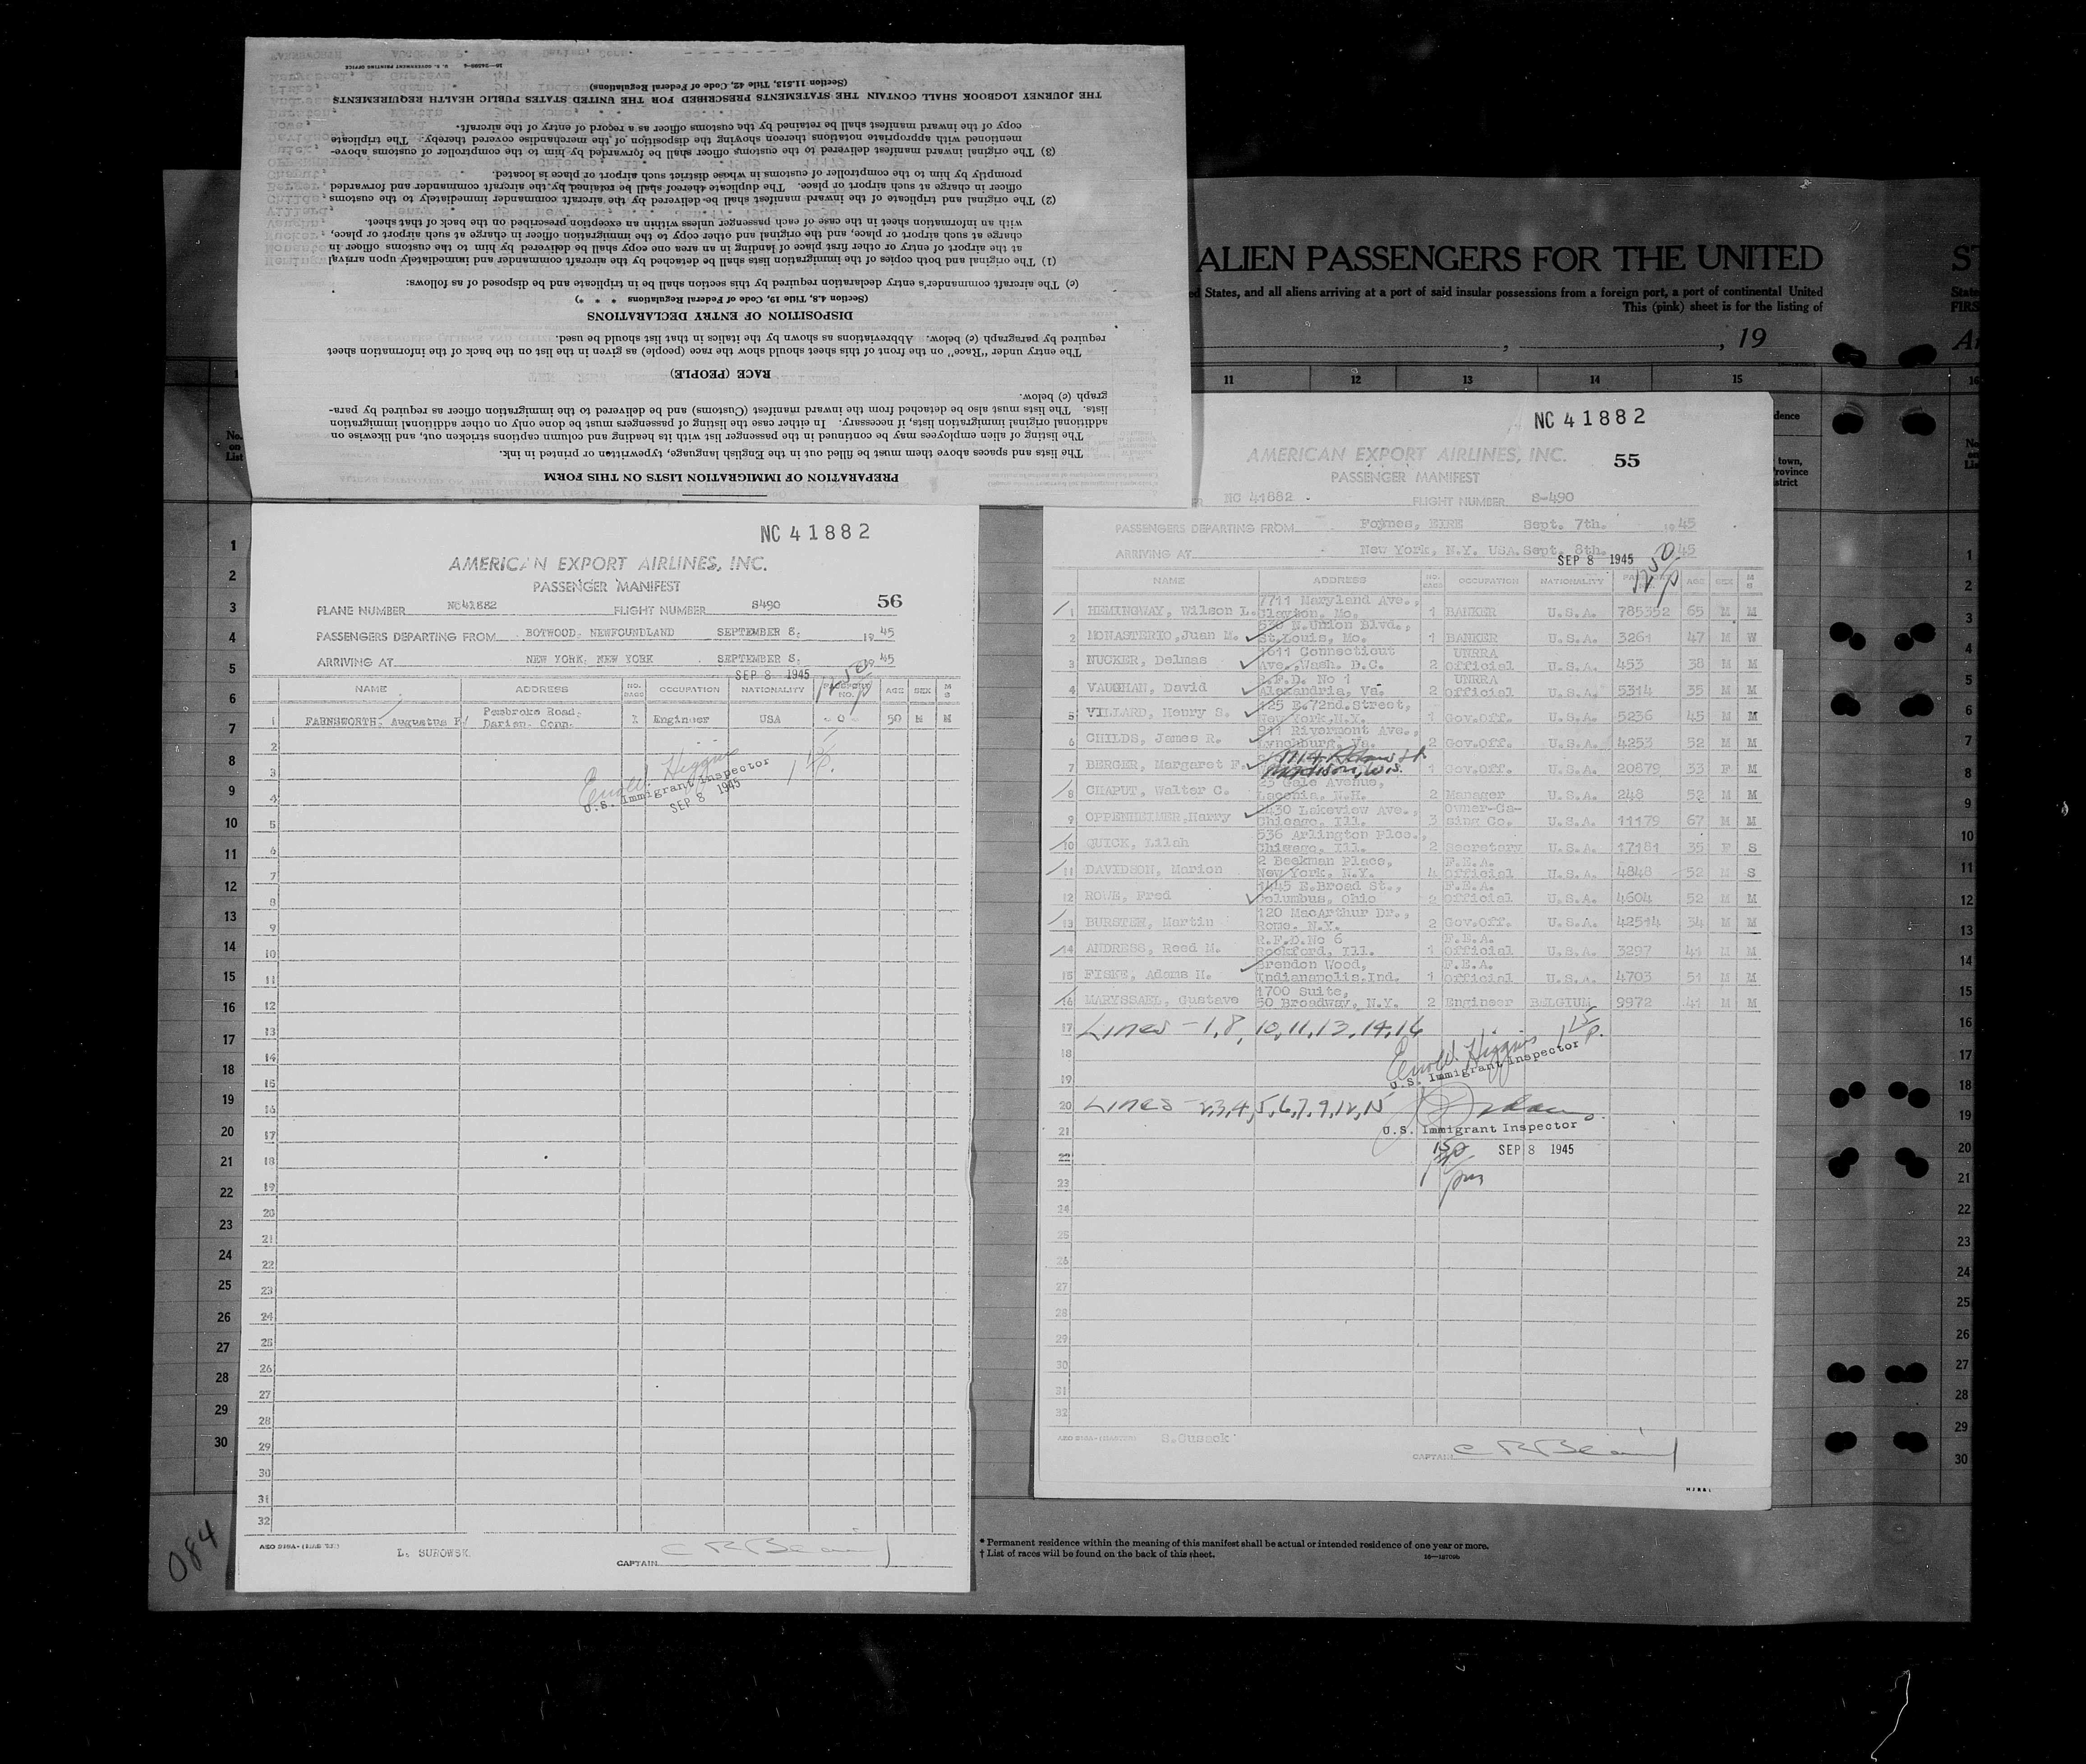 PREPARATION OF IMMIGRATION LISTS ON THIS FORM
The lists and spaces above them must be filled out in the English language, typewritten or printed in ink.
The listing of alien employees may be continued in the passenger list with its heading and column captions stricken out, and likewise on
additional original immigration lists, if necessary. In either case the listing of passengers must be done only on other additional immigration
lists. The lists must also be detached from the inward manifest (Customs) and be delivered to the immigration officer as required by para-
graph (c) below.
RACE (PEOPLE)
The entry under "Race" on the front of this sheet should show the race (people) as given in the list on the back of the information sheet
required by paragraph (c) below. Abbreviations as shown by the italics in that list should be used.
DISPOSITION OF ENTRY DECLARATIONS
(Section 4.8, Title 19, Code of Federal Regulations * * *)
(c) The aircraft commander's entry declaration required by this section shall be in triplicate and be disposed of as follows:
(1) The original and both copies of the immigration lists shall be detached by the aircraft commander and immediately upon arrival
at the airport of entry or other first place of landing in an area one copy shall be delivered by him to the customs officer in
charge at such airport or place, and the original and other copy to the immigration officer in charge at such airport or place,
with an information sheet in the case of each passenger unless within an exception prescribed on the back of that sheet.
(2) The original and triplicate of the inward manifest shall be delivered by the aircraft commander immediately to the customs
officer in charge at such airport or place. The duplicate thereof shall be retained by the aircraft commander and forwarded
promptly by him to the comptroller of customs in whose district such airport or place is located.
(3) The original inward manifest delivered to the customs officer shall be forwarded by him to the comptroller of customs above-
mentioned with appropriate notations thereon showing the disposition of the merchandise covered thereby. The triplicate
copy of the inward manifest shall be retained by the customs officer as a record of entry of the aircraft.
THE JOURNEY LOGBOOK SHALL CONTAIN THE STATEMENTS PRESCRIBED FOR THE UNITED STATES PUBLIC HEALTH REQUIREMENTS
(Section 11.513, Title 42, Code of Federal Regulations)
U. S. GOVERNMENT PRINTING OFFICE
ALIEN PASSENGERS FOR THE UNITED
ed States, and all aliens arriving at a port of said insular possessions from a foreign port, a port of continental United
This (pink) sheet is for the listing of
, , 19
11 12 13 14 15
NC 41882
AMERICAN EXPORT AIRLINES, INC.
PASSENGER MANIFEST
PLANE NUMBER NC41882 FLIGHT NUMBER S490 56
PASSENGERS DEPARTING FROM BOTWOOD, NEWFOUNDLAND SEPTEMBER 8, 19 45
ARRIVING AT NEW YORK, NEW YORK SEPTEMBER 8, 19 45
SEP 8 1945 12 50 P
NAME ADDRESS NO. PAGE OCCUPATION NATIONALITY PASSPORT NO. AGE SEX M S
1 FARNSWORTH, Augustus P. Pembroke Road, Darien, Conn. 1 Engineer USA - 0 - 50 M M
2
3
4
Errol W. Higgins
U.S. Immigrant Inspector
SEP 8 1945
5
6
7
8
9
10
11
12
13
14
15
16
17
18
19
20
21
22
23
24
25
26
27
28
29
30
31
32
L. SUROWSK
CAPTAIN C R Bea
084
NC 41882
AMERICAN EXPORT AIRLINES, INC. 55
PASSENGER MANIFEST
NC 41882 FLIGHT NUMBER S-490
PASSENGERS DEPARTING FROM Foynes, EIRE Sept. 7th. 19 45
ARRIVING AT New York, N.Y. USA. Sept. 8th. 45
SEP 8 1945 12 50 P
NAME ADDRESS NO. PAGE OCCUPATION NATIONALITY PASSPORT AGE SEX M S
1 HEMINGWAY, Wilson L. 7711 Maryland Ave., Clayton, Mo. 1 BANKER U.S.A. 785352 65 M M
2 MONASTERIO, Juan M. 530 N. Union Blvd., St. Louis, Mo. 1 BANKER U.S.A. 3261 47 M W
3 NUCKER, Delmas 1611 Connecticut Ave., Wash. D.C. 2 UNRRA Official U.S.A. 453 38 M M
4 VAUGHAN, David R.F.D. No 1 Alexandria, Va. 2 UNRRA Official U.S.A. 5314 35 M M
5 VILLARD, Henry S. 125 E. 72nd. Street, New York, N.Y. 1 Gov.Off. U.S.A. 5236 45 M M
6 CHILDS, James R. 211 Rivermont Ave., Lynchburg, Va. 2 Gov.Off. U.S.A. 4253 52 M M
7 BERGER, Margaret F. Madison, Wis. 1 Gov.Off. U.S.A. 20879 33 F M
8 CHAPUT, Walter C. 25 Gale Avenue, Laconia, N.H. 2 Manager U.S.A. 248 52 M M
9 OPPENHEIMER, Harry 2430 Lakeview Ave., Chicago, Ill. 3 Owner-Casing Co. U.S.A. 11179 67 M M
10 QUICK, Lilah 536 Arlington Plce., Chicago, Ill. 2 Secretary U.S.A. 17181 35 F S
11 DAVIDSON, Marion 2 Beekman Place, New York, N.Y. 4 F.E.A. Official U.S.A. 4848 52 M S
12 ROWE, Fred 1445 E. Broad St., Columbus, Ohio 2 F.E.A. Official U.S.A. 4604 52 M M
13 BURSTEN, Martin 120 MacArthur Dr., Rome, N.Y. 2 Gov.Off. U.S.A. 42514 34 M M
14 ANDRESS, Reed M. R.F.D. No 6 Rockford, Ill. 1 F.E.A. Official U.S.A. 3297 41 M M
15 FISKE, Adams H. Brendon Wood, Indianapolis, Ind. 1 F.E.A. Official U.S.A. 4703 51 M M
16 MARYSSAEL, Gustave 1700 Suite, 50 Broadway, N.Y. 2 Engineer BELGIUM 9972 41 M M
17 Lines - 1, 8, 10, 11, 13, 14, 16
18 Errol W. Higgins
19 U.S. Immigrant Inspector
20 Lines - 2,3,4,5,6,7,9,12,15
21 U.S. Immigrant Inspector
22 SEP 8 1945
23
24
25
26
27
28
29
30
31
32
S. Cusack
CAPTAIN C R Bea
* Permanent residence within the meaning of this manifest shall be actual or intended residence of one year or more.
† List of races will be found on the back of this sheet.